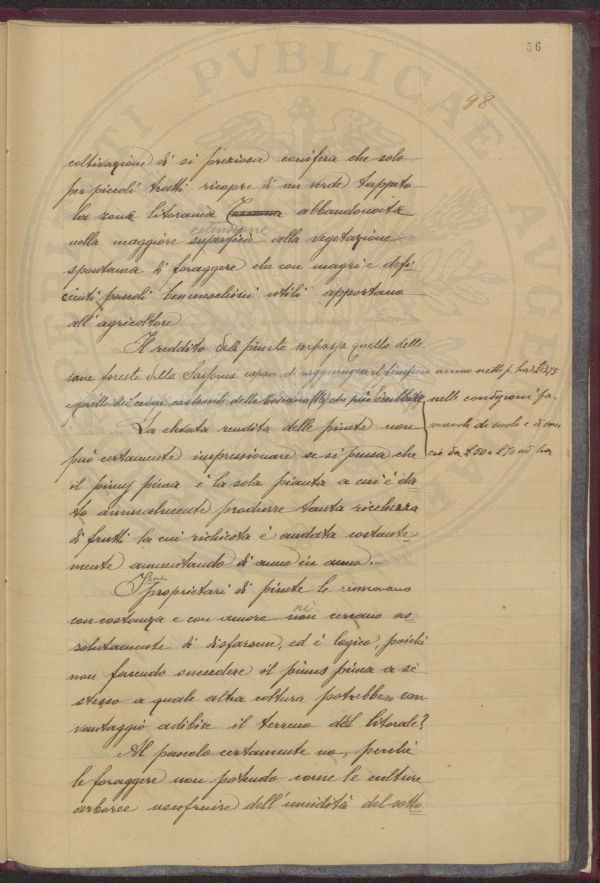 56
98
coltivazione di sì preziosa conifera che solo
per piccoli tratti ricopre di un verde tappeto
la zona litoranea abbandonata
estensione
nella maggiore superficie alla vegetazione
spontanea di foraggere che con magri e defi
cienti pascoli ben meschini utili apportano
all'agricoltore
Il reddito della pineta sorpassa quello delle
sane foreste della Sassonia capaci di raggiungere il beneficio annuo netto p. ha
e quello dei cedui castanili della Toscana che può dirsi nelle condizioni fa-
vorevoli di suolo e di
cio da £ 50 a £ 70 ad ha
La elevata rendita delle pinete non
può certamente impressionare se si pensa che
il pinus pinea è la sola pianta a cui è da
to annualmente produrre tanta ricchezza
di frutti la cui richiesta è andata costante-
mente aumentando di anno in anno.-
I proprietari di pinete le rinnovano
con costanza e con amore nè non cercano as
solutamente di disfarsene, ed è logico, poichè
non facendo succedere il pinus pinea a sè
stesso a quale altra coltura potrebbero con
vantaggio adibire il terreno del litorale?
Al pascolo certamente no, perchè
le foraggere non potendo come le culture
arboree usufruire dell'umidità del sotto
PVBLICAE